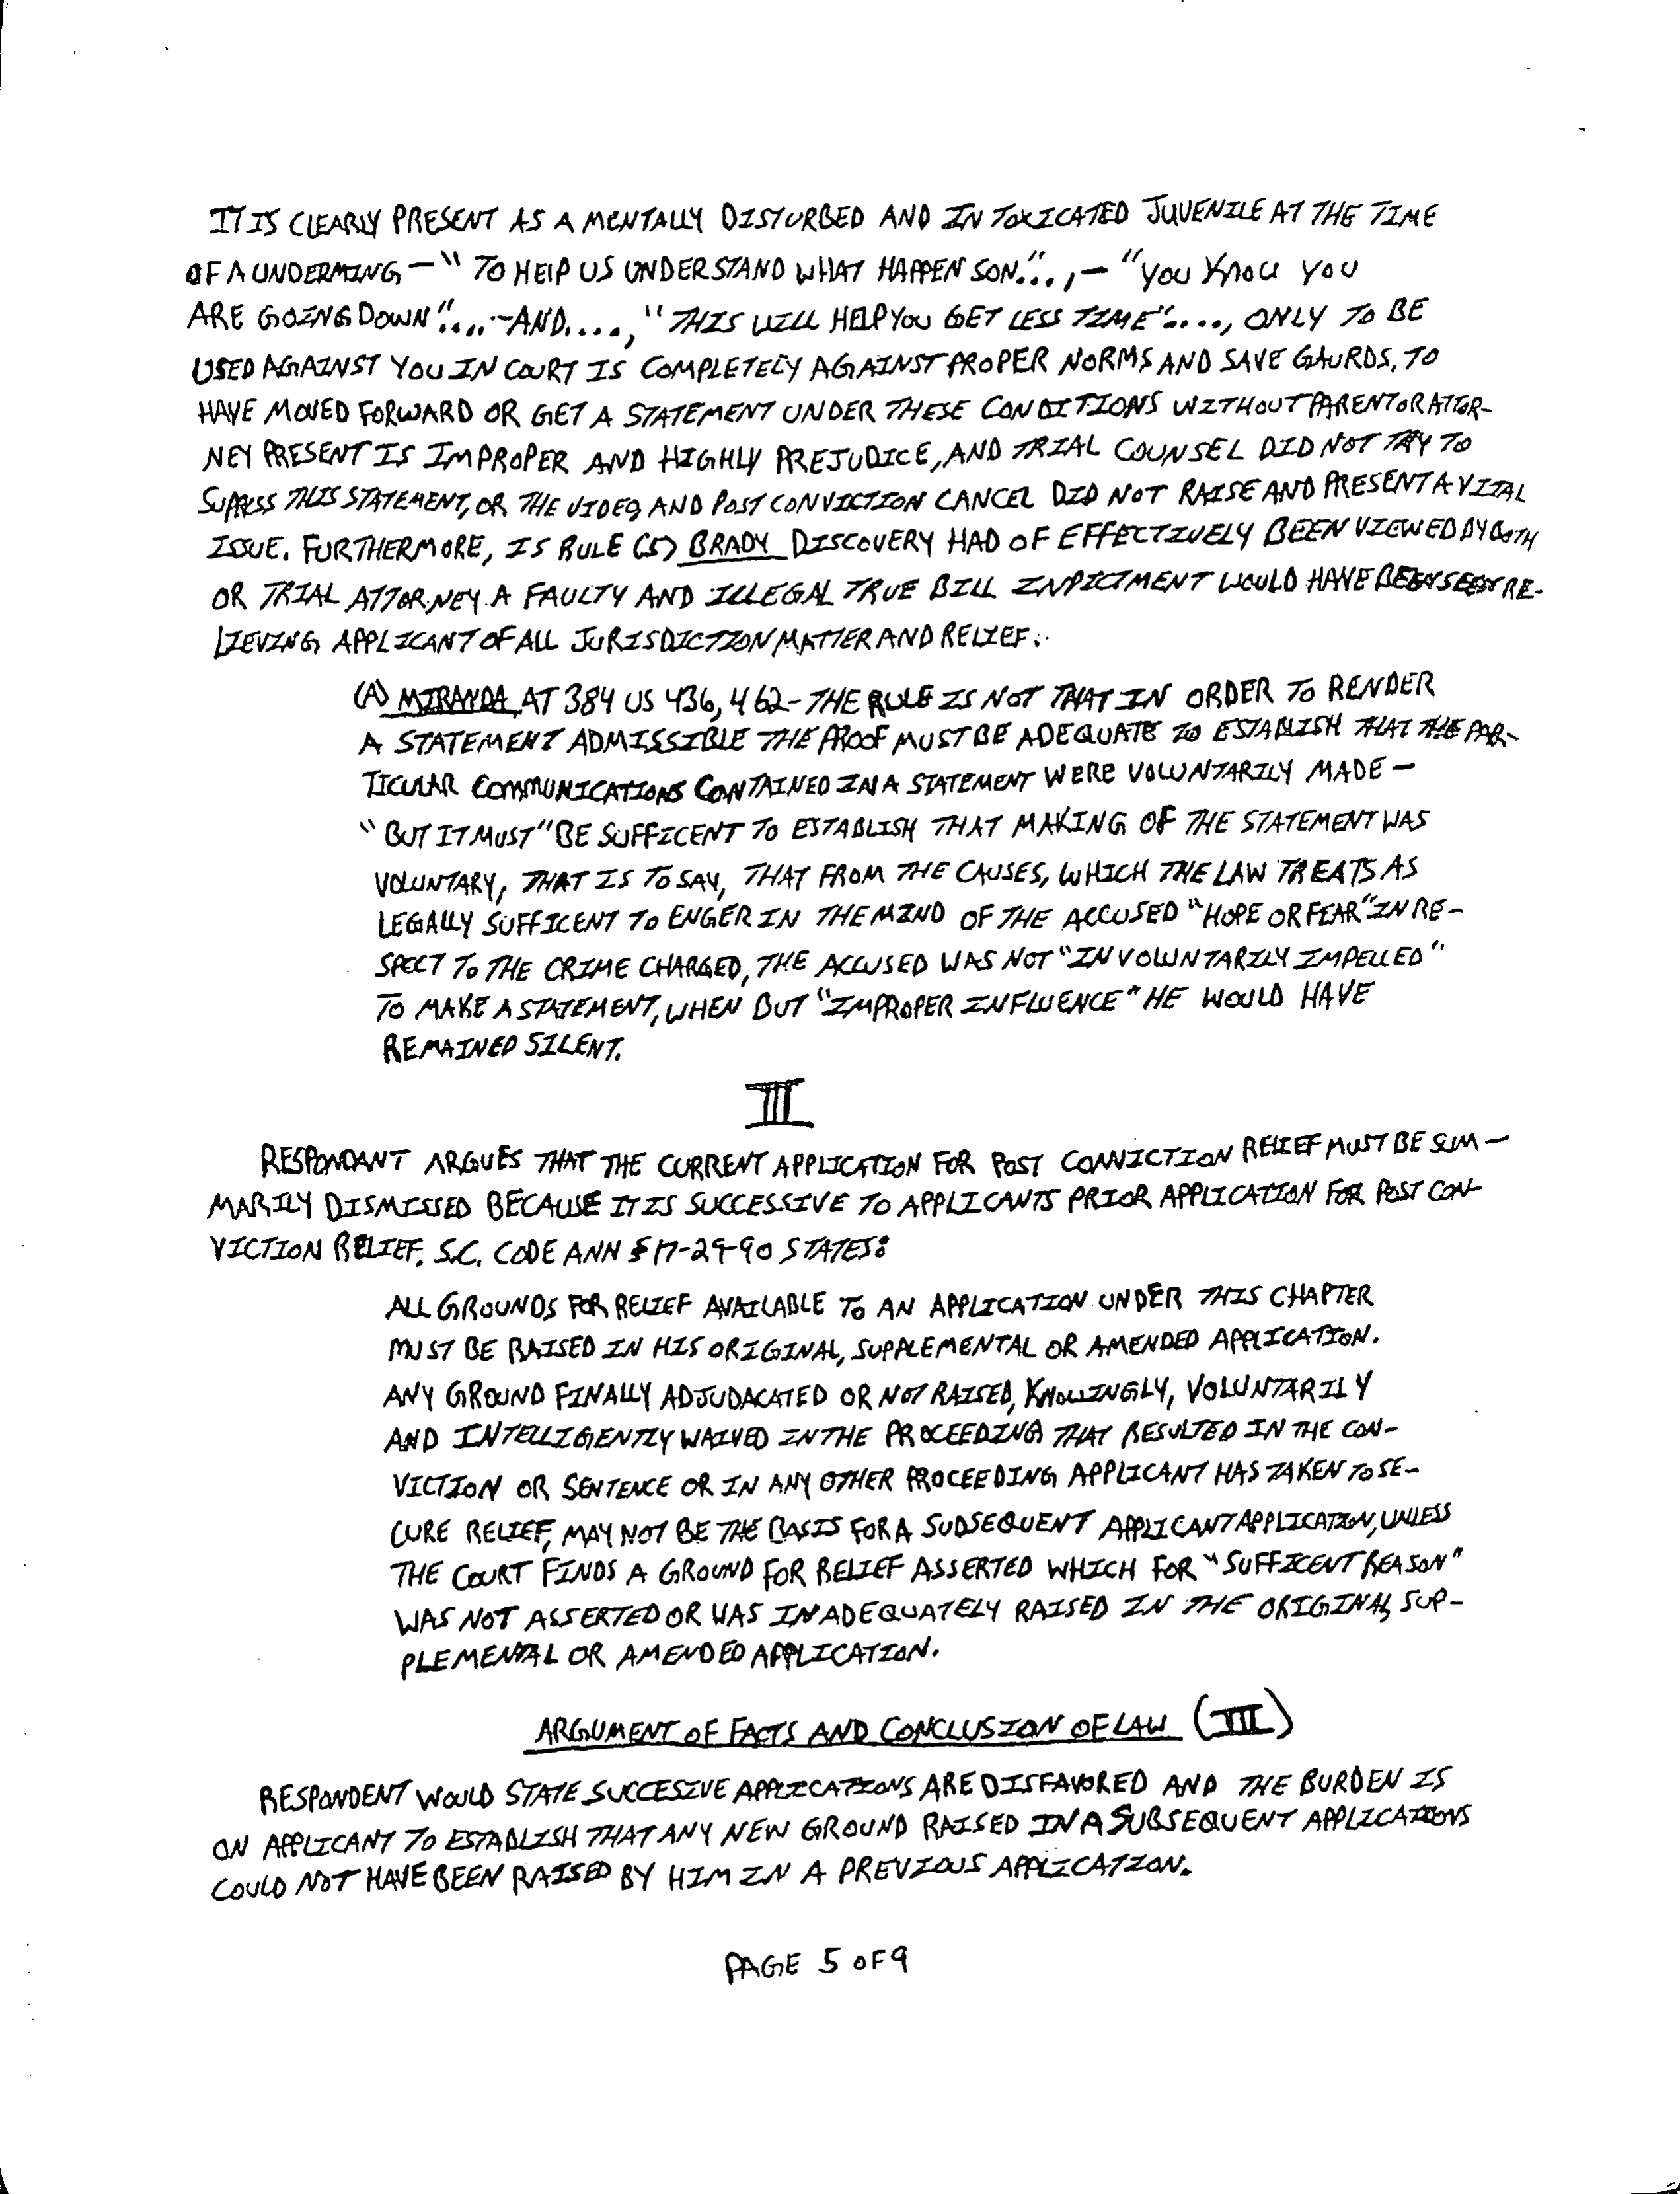 IT IS CLEARLY PRESENT AS A MENTALLY DISTURBED AND IN TOXICATED JUVENILE AT THE TIME
OF A UNDERMING — " TO HELP US UNDERSTAND WHAT HAPPEN SON."..,— "YOU KNOW YOU
ARE GOING DOWN"....-AND....,"THIS WILL HELP YOU GET LESS TIME"...., ONLY TO BE
USED AGAINST YOU IN COURT IS COMPLETELY AGAINST PROPER NORMS AND SAVE GAURDS. TO
HAVE MOVED FORWARD OR GET A STATEMENT UNDER THESE CONDITIONS WITHOUT PARENT OR ATTOR-
NEY PRESENT IS IMPROPER AND HIGHLY PREJUDICE, AND TRIAL COUNSEL DID NOT TRY TO
SUPRESS THIS STATEMENT, OR THE VIDEO, AND POST CONVICTION CANCEL DID NOT RAISE AND PRESENT A VITAL
ISSUE. FURTHERMORE, IS RULE (5) BRADY DISCOVERY HAD OF EFFECTIVELY BEEN VIEWED BY BOTH
OR TRIAL ATTORNEY A FAULTY AND ILLEGAL TRUE BILL INDICTMENT WOULD HAVE BEEN SEEN RE-
LIEVING APPLICANT OF ALL JURISDICTION MATTER AND RELIEF.
(A) MIRANDA, AT 384 US 436, 462 - THE RULE IS NOT THAT IN ORDER TO RENDER
A STATEMENT ADMISSIBLE THE PROOF MUST BE ADEQUATE TO ESTABLISH THAT THE PAR-
TICULAR COMMUNICATIONS CONTAINED IN A STATEMENT WERE VOLUNTARILY MADE —
"BUT IT MUST" BE SUFFICENT TO ESTABLISH THAT MAKING OF THE STATEMENT WAS
VOLUNTARY, THAT IS TO SAY, THAT FROM THE CAUSES, WHICH THE LAW TREATS AS
LEGALLY SUFFICENT TO ENGER IN THE MIND OF THE ACCUSED "HOPE OR FEAR" IN RE-
SPECT TO THE CRIME CHARGED, THE ACCUSED WAS NOT "INVOLUNTARILY IMPELLED"
TO MAKE A STATEMENT, WHEN BUT "IMPROPER INFLUENCE" HE WOULD HAVE
REMAINED SILENT.
III
RESPONDANT ARGUES THAT THE CURRENT APPLICATION FOR POST CONVICTION RELIEF MUST BE SUM-
MARILY DISMISSED BECAUSE IT IS SUCCESSIVE TO APPLICANTS PRIOR APPLICATION FOR POST CON-
VICTION RELIEF. S.C. CODE ANN § 17-27-90 STATES:
ALL GROUNDS FOR RELIEF AVAILABLE TO AN APPLICATION UNDER THIS CHAPTER
MUST BE RAISED IN HIS ORIGINAL, SUPPLEMENTAL OR AMENDED APPLICATION.
ANY GROUND FINALLY ADJUDACATED OR NOT RAISED, KNOWINGLY, VOLUNTARILY
AND INTELLIGENTLY WAIVED IN THE PROCEEDING THAT RESULTED IN THE CON-
VICTION OR SENTENCE OR IN ANY OTHER PROCEEDING APPLICANT HAS TAKEN TO SE-
CURE RELIEF, MAY NOT BE THE BASIS FOR A SUBSEQUENT APPLICANT APPLICATION, UNLESS
THE COURT FINDS A GROUND FOR RELIEF ASSERTED WHICH FOR "SUFFICENT REASON"
WAS NOT ASSERTED OR WAS INADEQUATELY RAISED IN THE ORIGINAL, SUP-
PLEMENTAL OR AMENDED APPLICATION.
ARGUMENT OF FACTS AND CONCLUSION OF LAW (III)
RESPONDENT WOULD STATE SUCCESIVE APPLICATIONS ARE DISFAVORED AND THE BURDEN IS
ON APPLICANT TO ESTABLISH THAT ANY NEW GROUND RAISED IN A SUBSEQUENT APPLICATIONS
COULD NOT HAVE BEEN RAISED BY HIM IN A PREVIOUS APPLICATION.
PAGE 5 OF 9